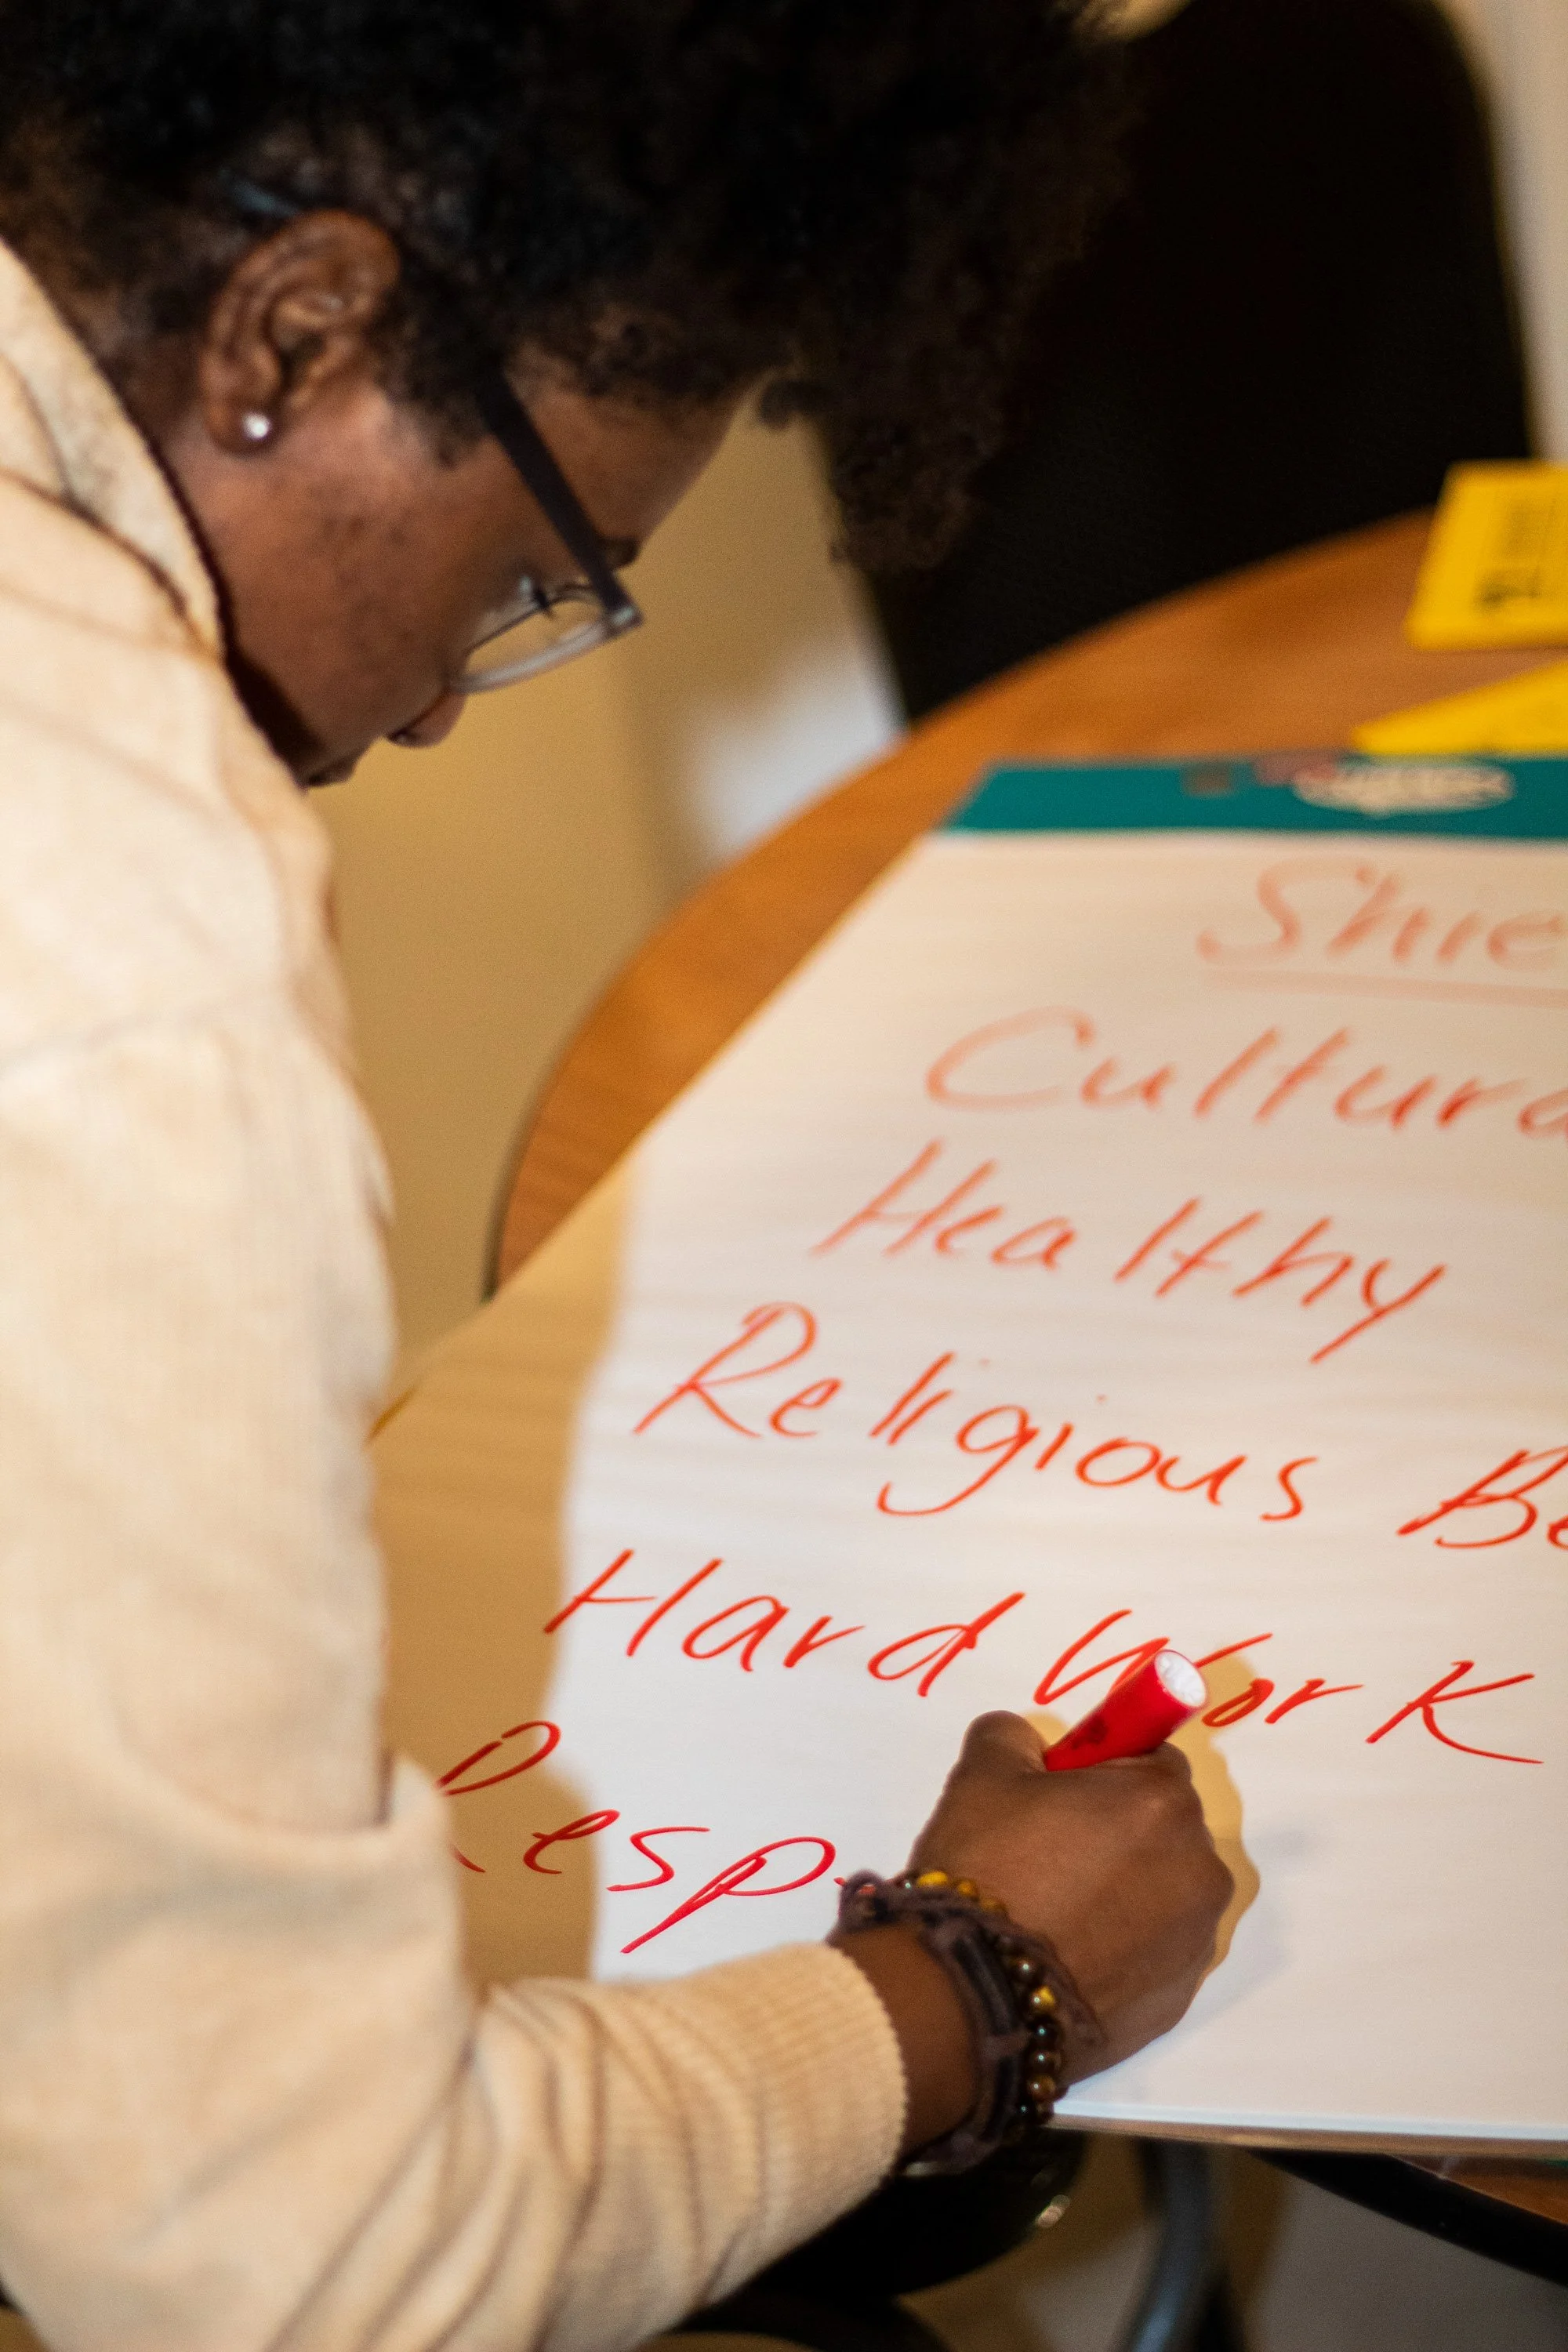 Shie
Cultura
Healthy
Religious Be
Hard Work
Resp